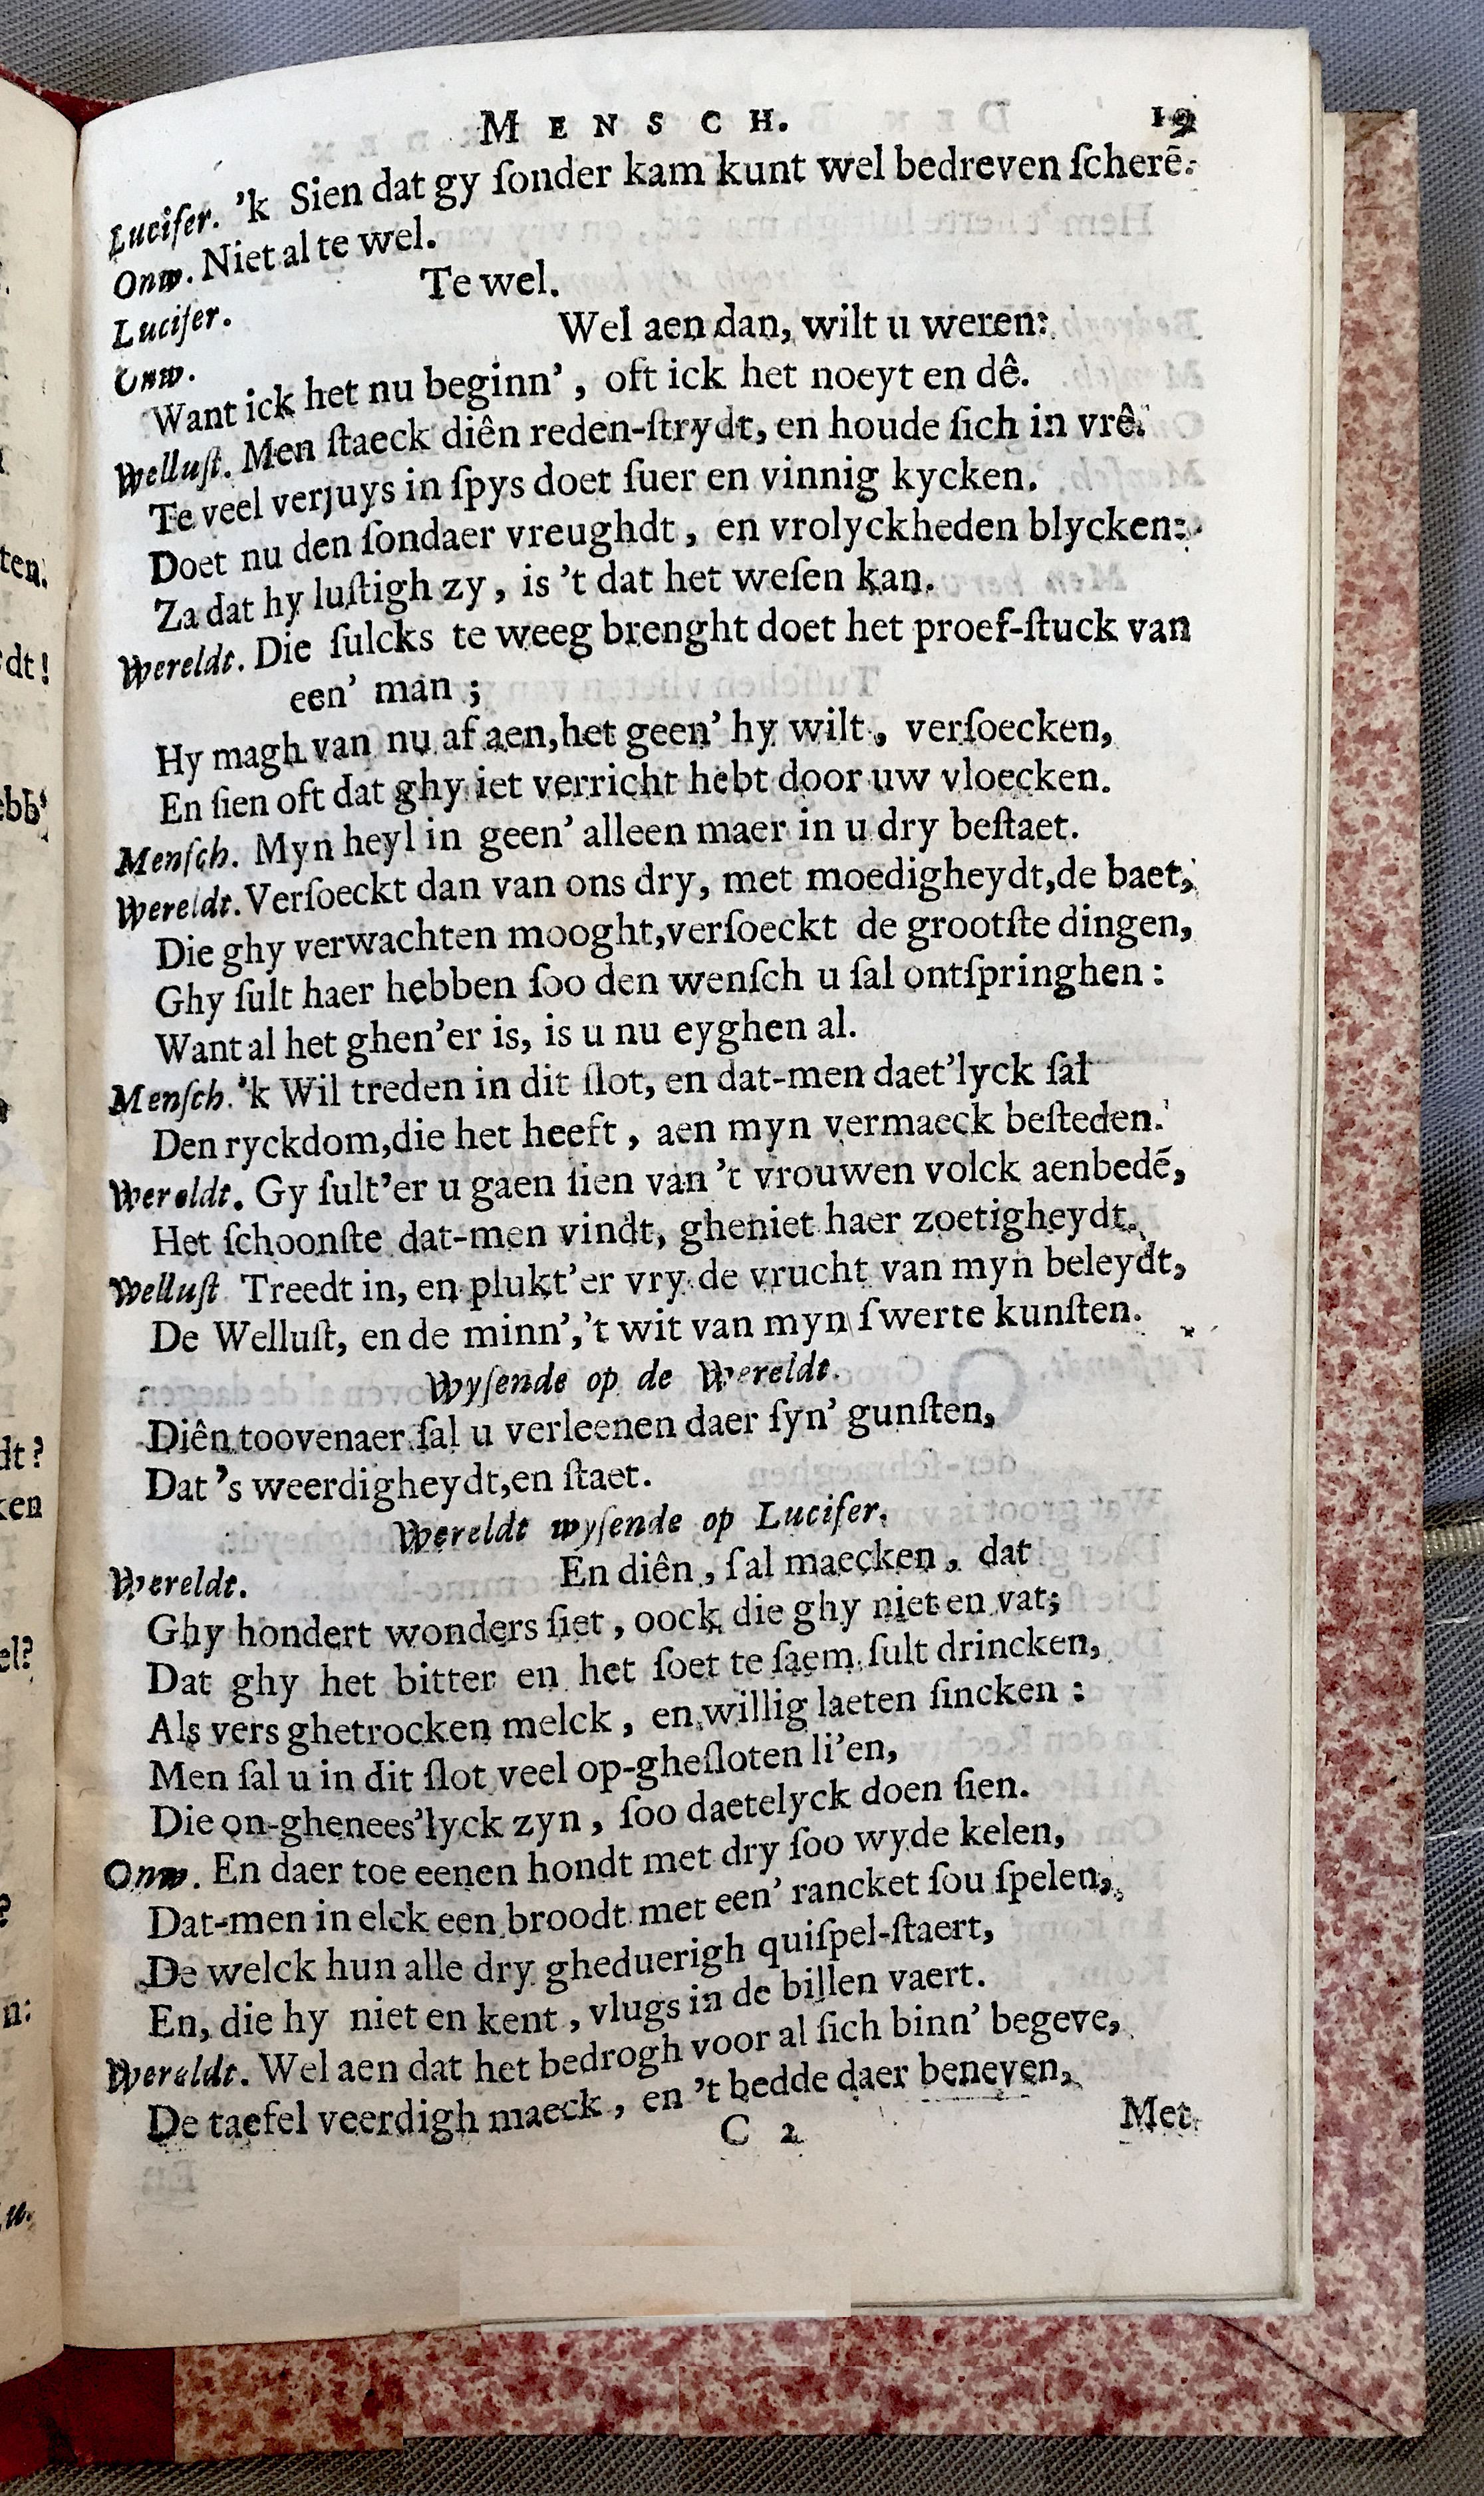 MENSCH. 19
Lucifer. 'k Sien dat gy ſonder kam kunt wel bedreven ſcherē.
Onw. Niet al te wel.
Lucifer. Te wel.
Onw. Wel aen dan, wilt u weren:
Want ick het nu beginn', oft ick het noeyt en dê.
Welluſt. Men ſtaeck diên reden-ſtrydt, en houde ſich in vrê.
Te veel verjuys in ſpys doet ſuer en vinnig kycken.
Doet nu den ſondaer vreughdt, en vrolyckheden blycken:
Za dat hy luſtigh zy, is 't dat het weſen kan.
Wereldt. Die ſulcks te weeg brenght doet het proef-ſtuck van
een' man;
Hy magh van nu af aen, het geen' hy wilt, verſoecken,
En ſien oft dat ghy iet verricht hebt door uw vloecken.
Menſch. Myn heyl in geen' alleen maer in u dry beſtaet.
Wereldt. Verſoeckt dan van ons dry, met moedigheydt, de baet,
Die ghy verwachten mooght, verſoeckt de grootſte dingen,
Ghy ſult haer hebben ſoo den wenſch u ſal ontſpringhen:
Want al het ghen'er is, is u nu eyghen al.
Menſch. 'k Wil treden in dit ſlot, en dat-men daet'lyck ſal
Den ryckdom, die het heeft, aen myn vermaeck beſteden.
Wereldt. Gy ſult'er u gaen ſien van 't vrouwen volck aenbedē,
Het ſchoonſte dat-men vindt, gheniet haer zoetigheydt.
Welluſt Treedt in, en plukt'er vry de vrucht van myn beleydt,
De Welluſt, en de minn', 't wit van myn ſwerte kunſten.
Wyſende op de Wereldt.
Diên toovenaer ſal u verleenen daer ſyn' gunſten,
Dat 's weerdigheydt, en ſtaet.
Wereldt wyſende op Lucifer.
Wereldt. En diên, ſal maecken, dat
Ghy hondert wonders ſiet, oock die ghy niet en vat;
Dat ghy het bitter en het ſoet te ſaem ſult drincken,
Als vers ghetrocken melck, en willig laeten ſincken:
Men ſal u in dit ſlot veel op-gheſloten li'en,
Die on-ghenees'lyck zyn, ſoo daetelyck doen ſien.
Onw. En daer toe eenen hondt met dry ſoo wyde kelen,
Dat-men in elck een broodt met een' rancket ſou ſpelen,
De welck hun alle dry gheduerigh quiſpel-ſtaert,
En, die hy niet en kent, vlugs in de billen vaert.
Wereldt. Wel aen dat het bedrogh voor al ſich binn' begeve,
De taefel veerdigh maeck, en 't bedde daer beneven,
C 2 Met